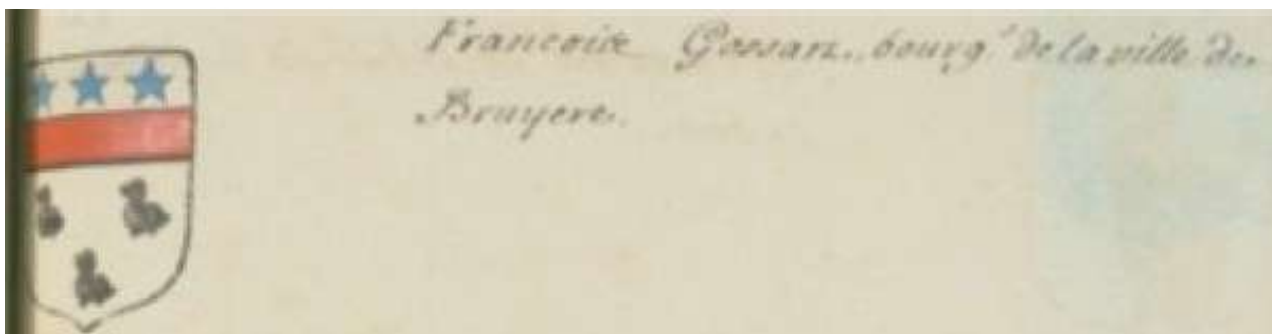 Francois Gossan, bourg.' de la ville de
Bruyere.